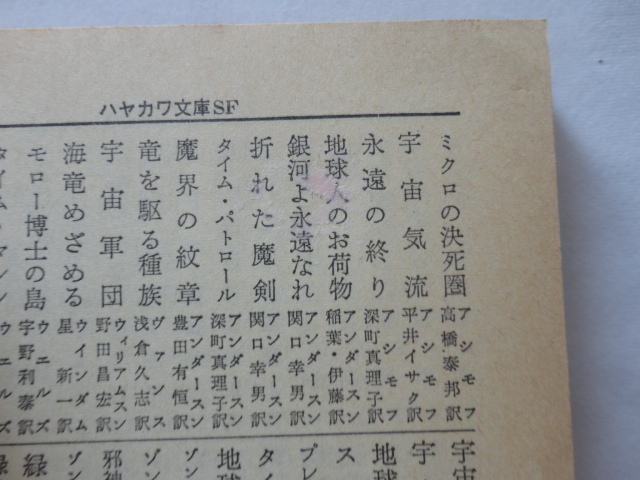 ハヤカワ文庫SF
ミクロの決死圏 アシモフ 高橋泰邦訳
宇宙気流 アシモフ 平井イサク訳
永遠の終り アシモフ 深町真理子訳
地球人のお荷物 アンダースン 稲葉・伊藤訳
銀河よ永遠なれ アンダースン 関口幸男訳
折れた魔剣 アンダースン 関口幸男訳
タイム・パトロール アンダースン 深町真理子訳
魔界の紋章 アンダースン 豊田有恒訳
竜を駆る種族 ヴァンス 浅倉久志訳
宇宙軍団 ウィリアムスン 野田昌宏訳
海竜めざめる ウインダム 星新一訳
モロー博士の島 ウェルズ 宇野利泰訳
タイム・マシン ウェルズ
宇宙
宇
地球
ス
プレ
タイ
地球
ゾン
ゾン
邪神
ゾン
緑